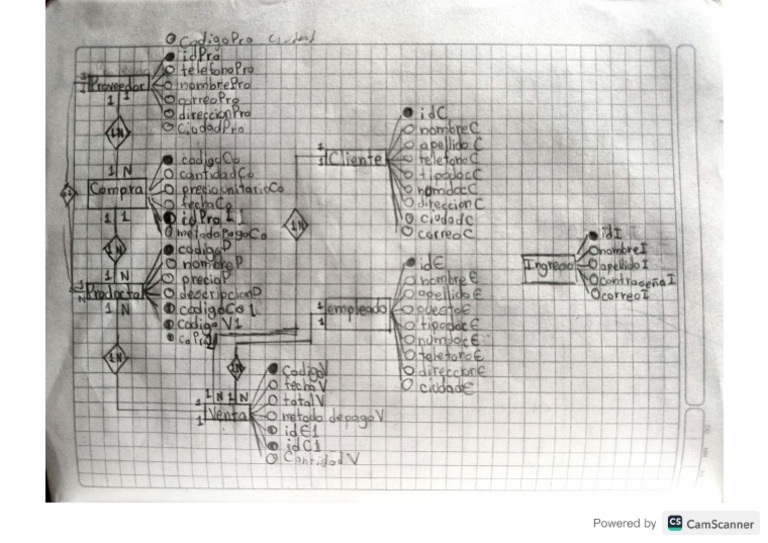 CodigoPro ciudad
Proveedor
idPro
telefonoPro
nombrePro
correoPro
direccionPro
CiudadPro
1
1
1
1N
1 N
Compra
codigoCo
cantidadCo
preciounitarioCo
fechaCo
idPro 1 1
metodoPagoCo
1 1
1N
1 N
Productal
codigoP
nombreP
precioP
descripcionP
codigoCo 1
Codigo V1
1 N
1N
Cliente
1
1
idC
nombreC
apellidoC
telefonoC
tipodocC
numdocC
direccionC
ciudadC
correoC
1N
empleado
1
1
idE
nombreE
apellidoE
puestoE
tipodocE
numdocE
telefonoE
direccionE
ciudadE
1N
1 N 1 N
1
Venta
CodigoV
fechaV
totalV
metodo de pagoV
idE1
idC1
CantidadV
Ingreso
idI
nombreI
apellidoI
contraseñaI
correoI
Powered by CS CamScanner